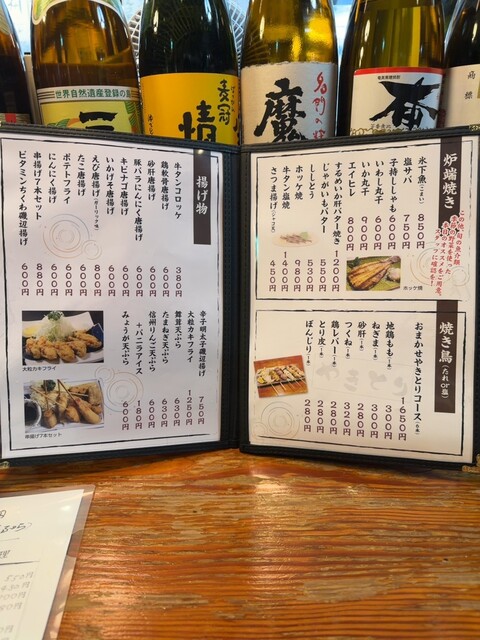 炉端焼き
この他、旬の魚介類
季節の野菜を使った
本日のオススメをご用意。
スタッフに確認を!
氷下魚(こまい) 850円
塩サバ 750円
子持ししゃも 600円
いわし丸干 600円
いか丸干 900円
エイヒレ 800円
するめいか肝バター焼き 1200円
じゃがいもバター 550円
ししとう 530円
ホッケ焼 950円
牛タン塩焼 1400円
さつま揚げ(ジャコ天) 450円
ホッケ焼
焼き鳥(たれor塩)
おまかせやきとりコース(5本) 1650円
地鶏もも(1本) 300円
ねぎま(1本) 300円
つくね(1本) 320円
砂肝(1本) 280円
鶏レバー(1本) 280円
とり皮(1本) 280円
ぼんじり(1本) 280円
揚げ物
牛タンコロッケ 380円
鶏軟骨唐揚げ 600円
砂肝唐揚げ 600円
豚バラにんにく唐揚げ
キビナゴ唐揚げ 600円
いかげそ唐揚げ 600円
えび唐揚げ(ガーリック味)
たこ唐揚げ 600円
ポテトフライ 600円
にんにく揚げ
串揚げ7本セット
ビタミンちくわ磯辺揚げ 600円
辛子明太子磯辺揚げ 750円
大粒カキフライ 1250円
舞茸天ぷら 630円
たまねぎ天ぷら 630円
信州りんご天ぷら 600円
+バニラアイス 180円
みょうが天ぷら 600円
大粒カキフライ
串揚げ7本セット
世界自然遺産登録の島
情
魔